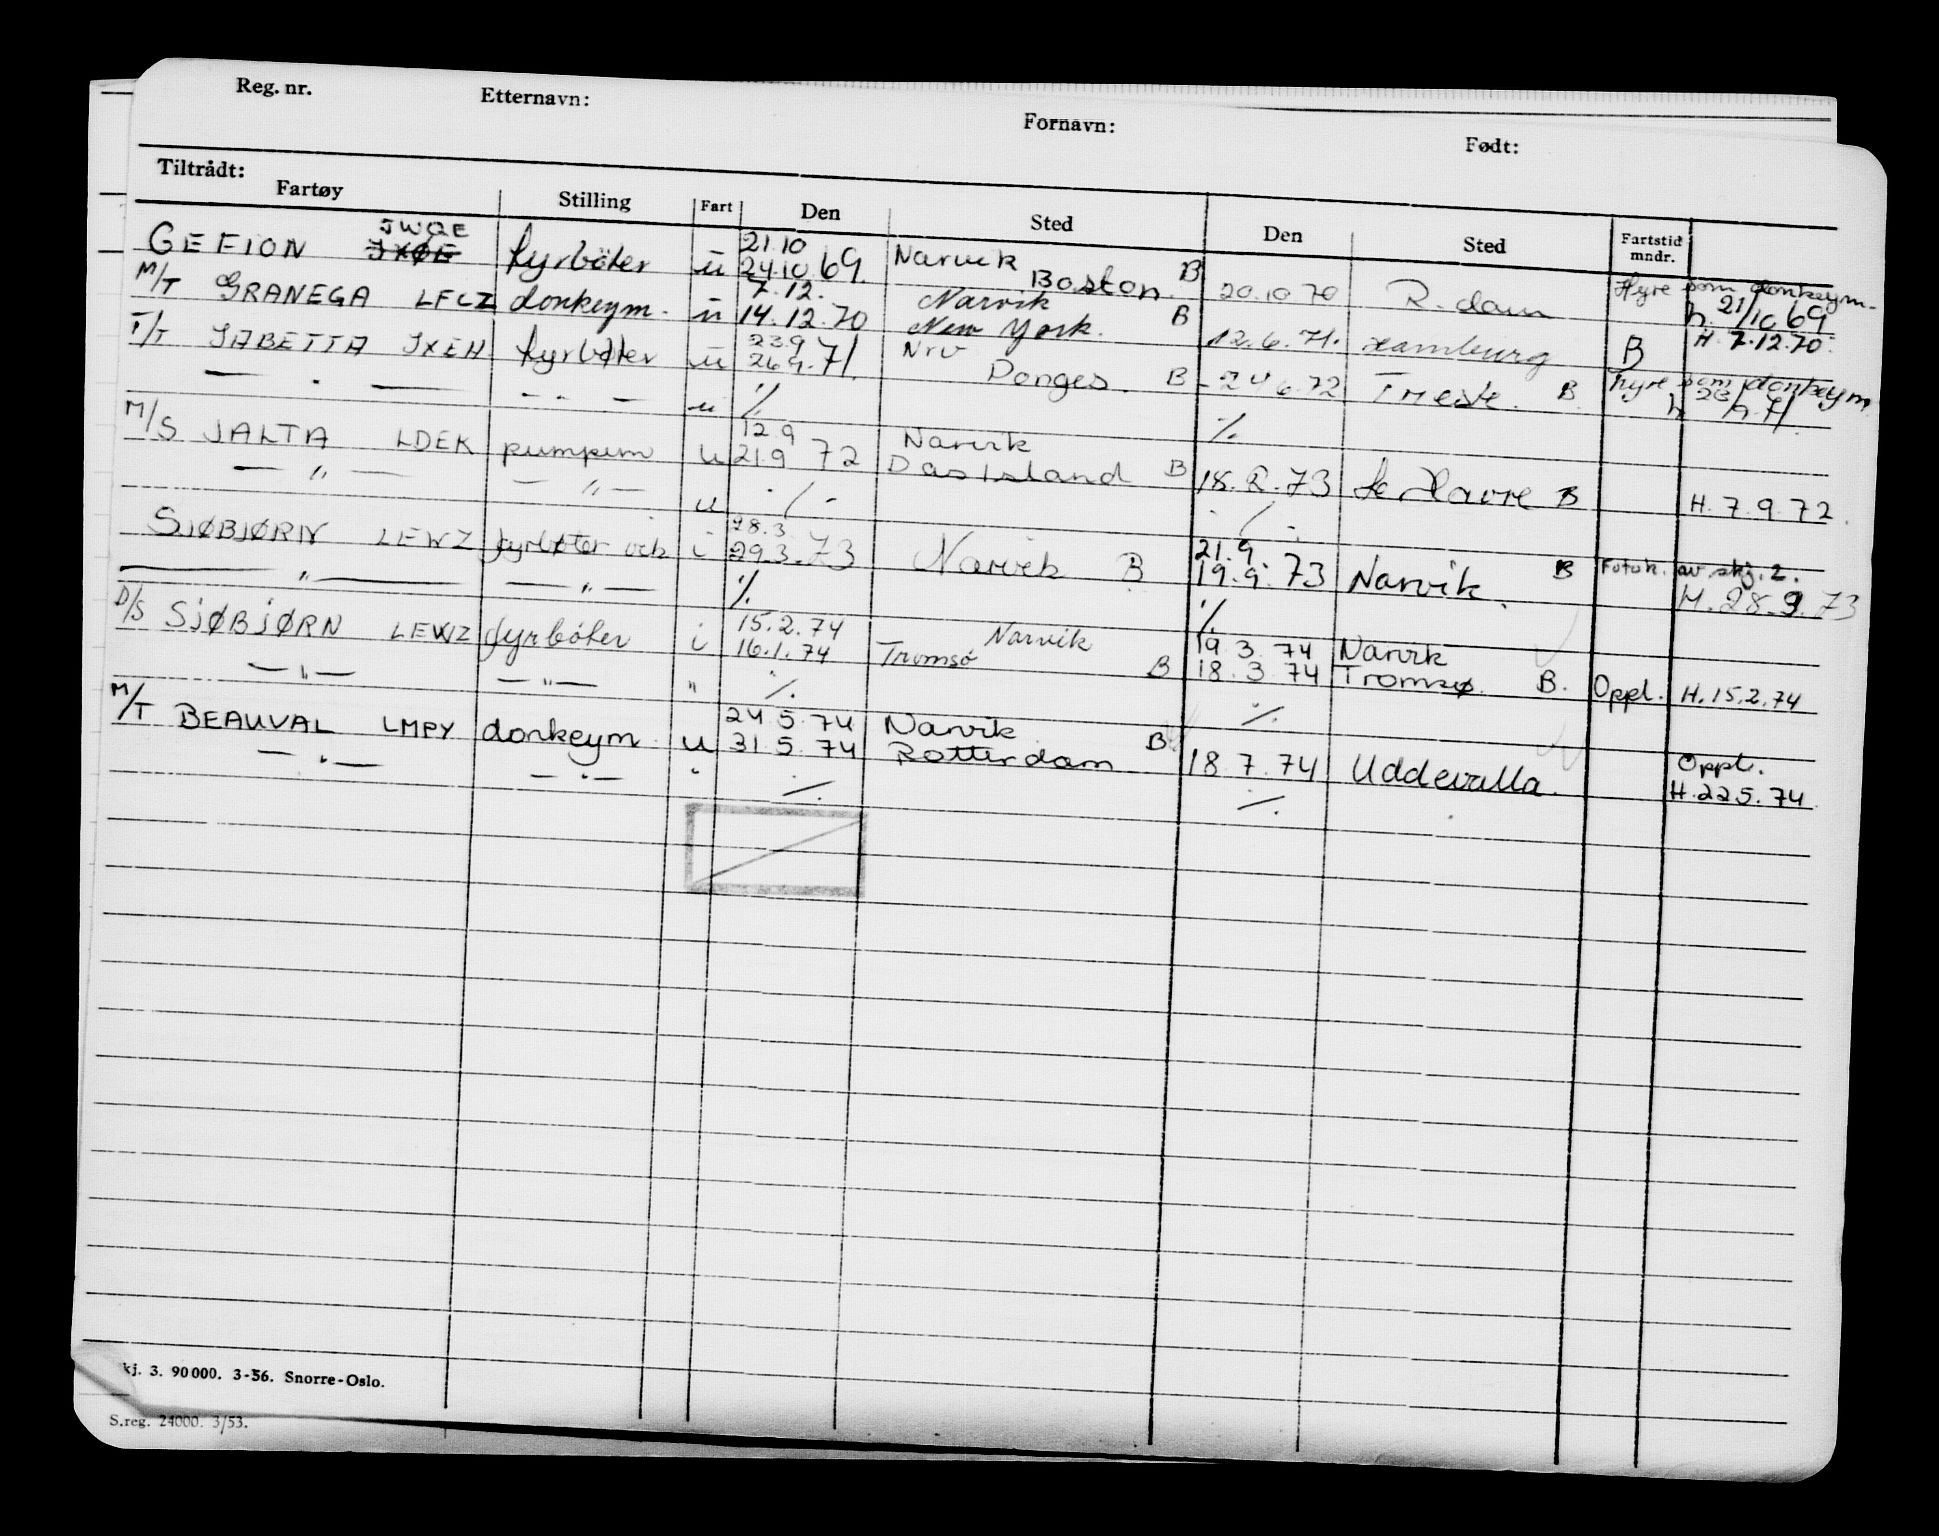 Reg. nr. Etternavn: Fornavn: Født:
Tiltrådt:
Fartøy Stilling Fart Den Sted Den Sted Fartstid mndr.
JWQE 21.10 Narvik Hyre som donkeym.
GEFION fyrbøter u 24.10.69. Boston. B 20.10.70 R.dam h. 21/10 69
7.12. Narvik H. 7.12.70.
M/T GRANEGA LFCZ donkeym. u 14.12.70 New York. B 12.6.71. Hamburg B
23.9 Nrv hyre som donkeym
T/T JABETTA JXEH fyrbøter u 26.9.71. Donges. B 24 6.72 Trieste. B h 23/9.71.
— " — — " — u ./. ./.
12.9 Narvik
M/S JALTA LDEK pumpem u 21.9 72 Das Island B 18.2.73 Le Havre B H. 7.9.72.
— " — — " — u ./. ./.
28.3 21.9. Fotok. av skj. 2.
SJØBJØRN LEWZ fyrbøter vik i 29.3.73 Narvik B 19.9.73 Narvik. B H.28.9.73
— " — — " — ./. ./.
15.2.74 Narvik 19.3.74 Narvik
D/S SJØBJØRN LEWZ fyrbøter i 16.1.74 Tromsø B 18.3.74 Tromsø. B. Oppl. H.15.2.74
— " — — " — " ./. ./.
24.5.74 Narvik Oppl.
M/T BEAUVAL LMPY donkeym. u 31.5.74 Rotterdam B 18.7.74 Uddevalla. H.22.5.74
— " — — " — " ./. ./.
kj. 3. 90000. 3-56. Snorre-Oslo.
S.reg. 24000. 3/53.